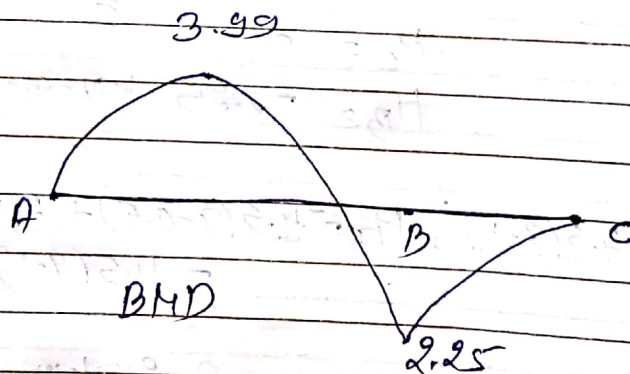 3.99
A
B
C
BMD
2.25